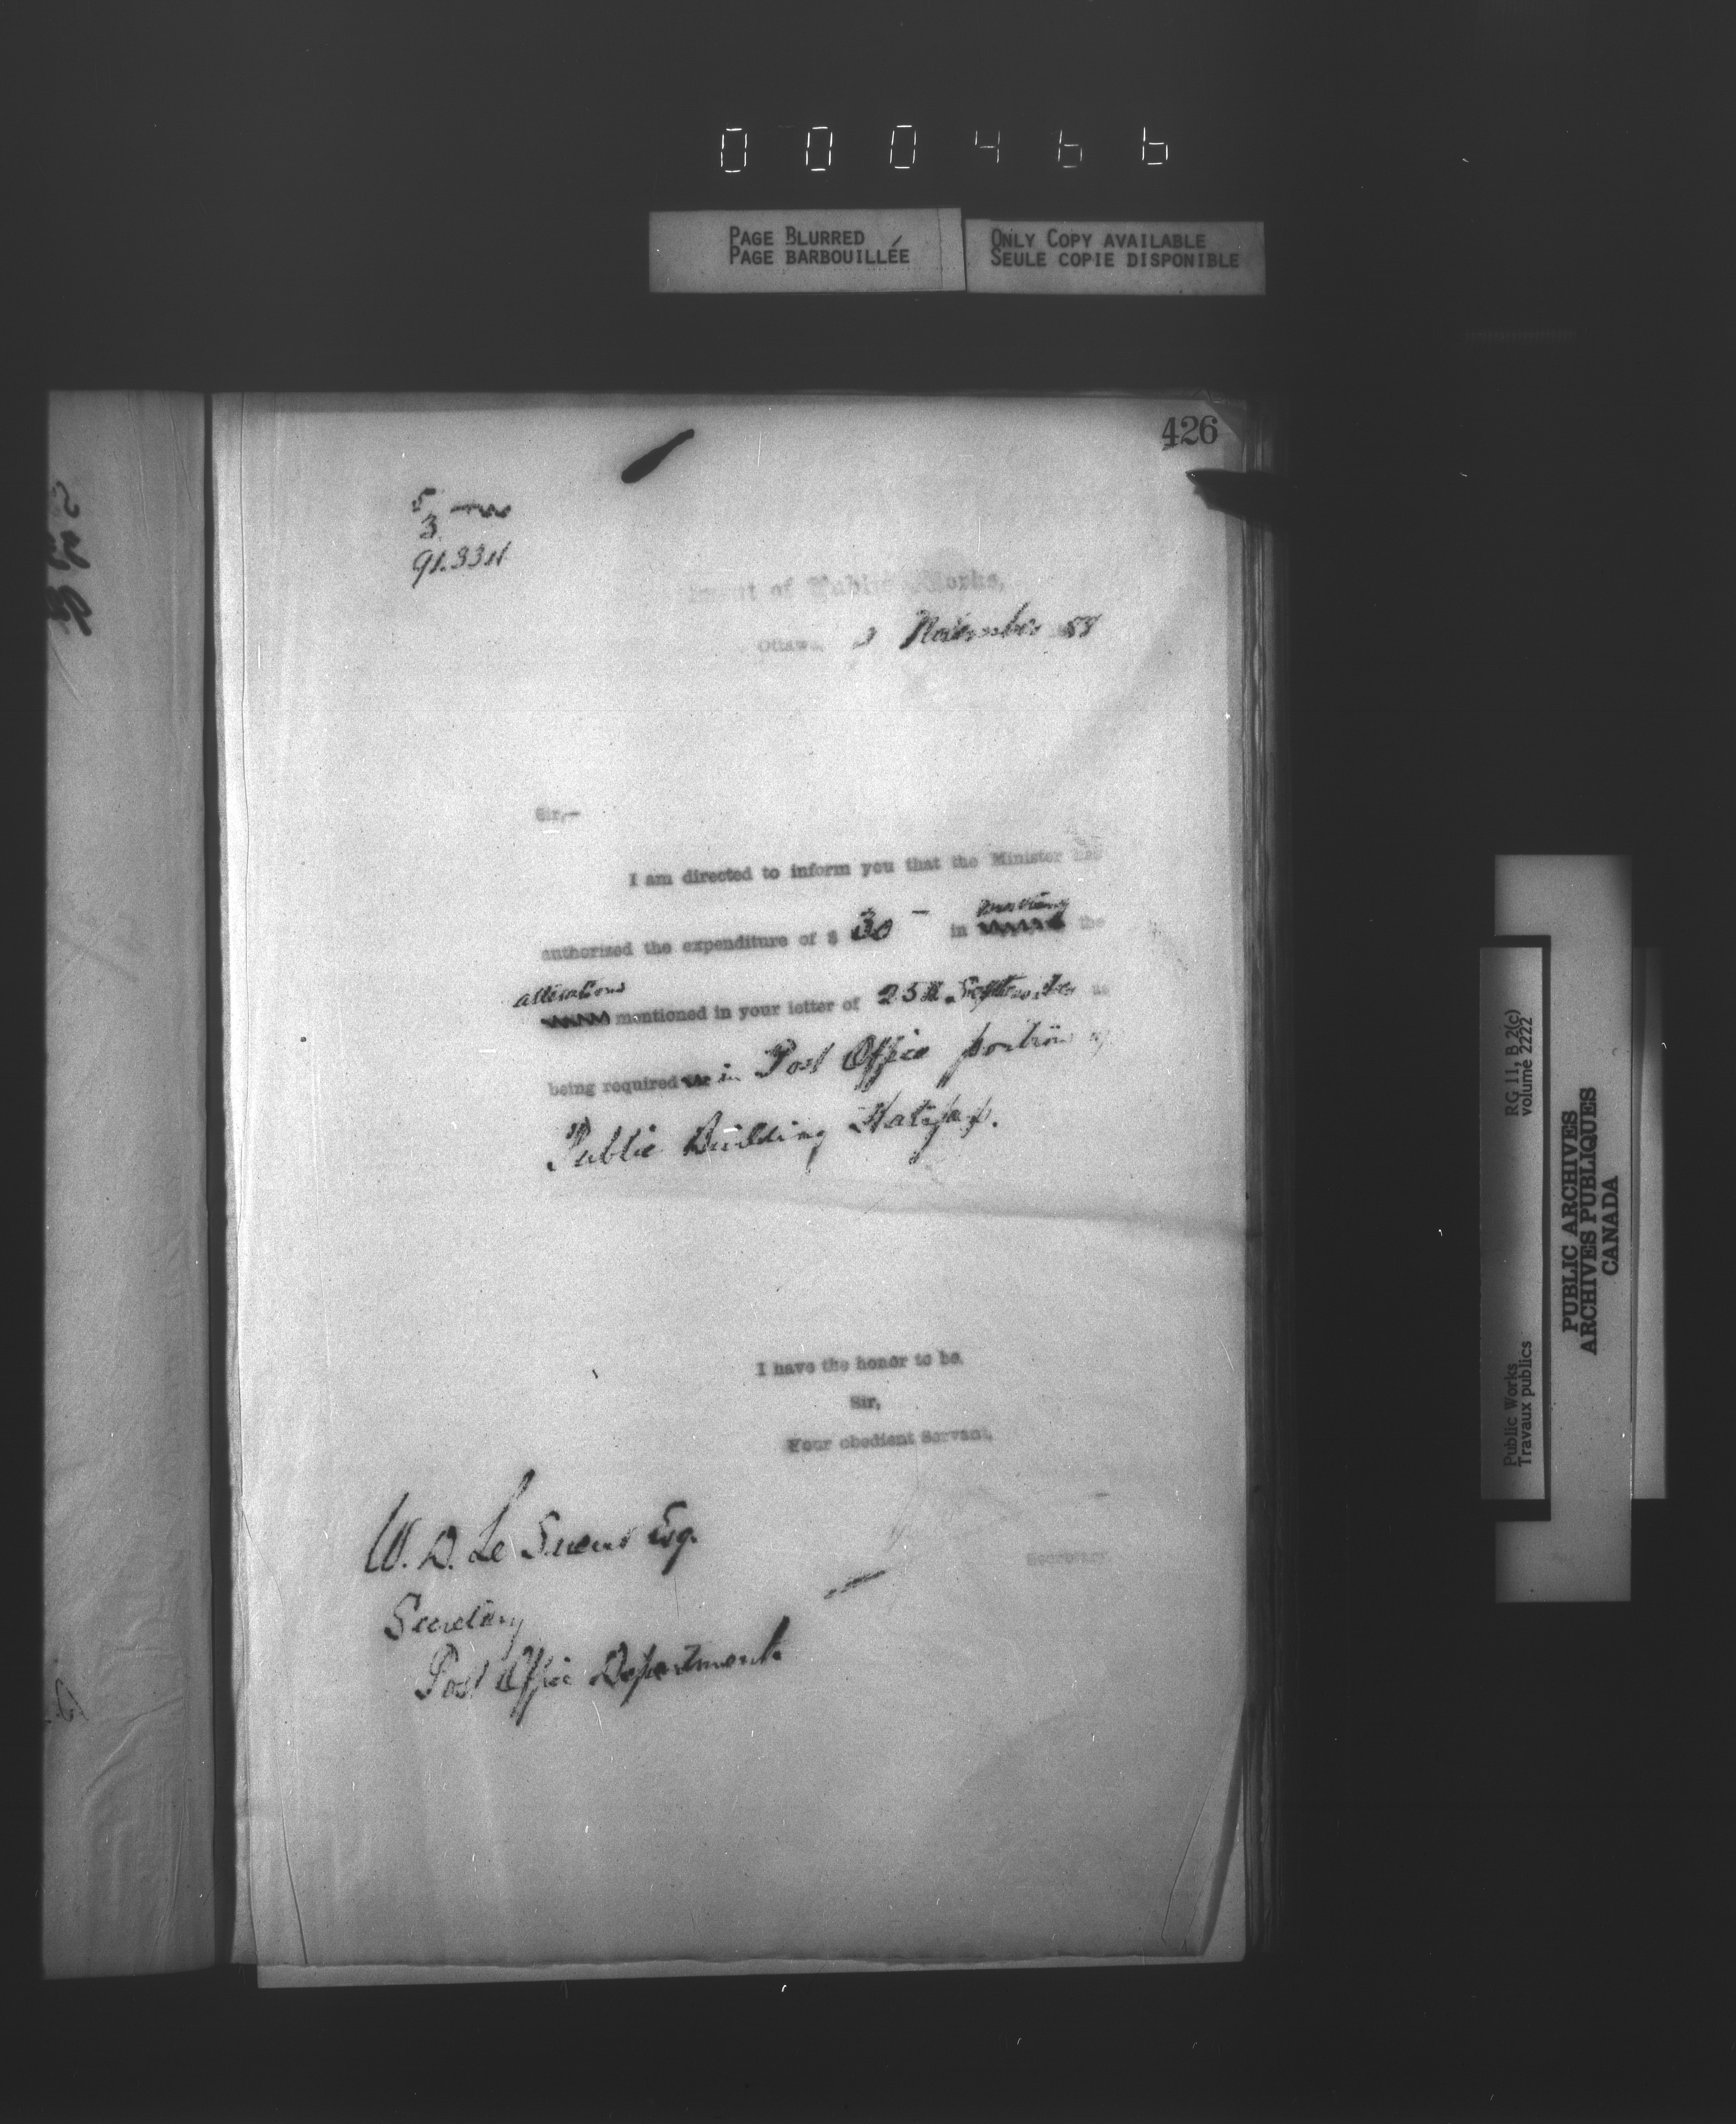 000466
PAGE BLURRED
PAGE BARBOUILLÉE
ONLY COPY AVAILABLE
SEULE COPIE DISPONIBLE
426
5
3
of Public Works,
Ottawa, November 88
Sir,—
I am directed to inform you that the Minister has
authorized the expenditure of $ 30 – in making the
alterations
mentioned in your letter of 25th September as
being required in Post Office portion of
Public Building Halifax.
I have the honor to be,
Sir,
Your obedient Servant,
Secretary
W. D. Le Sueur Esq.
Secretary
Post Office Department
RG 11, B 2(c)
volume 2222
Public Works
Travaux publics
PUBLIC ARCHIVES
ARCHIVES PUBLIQUES
CANADA